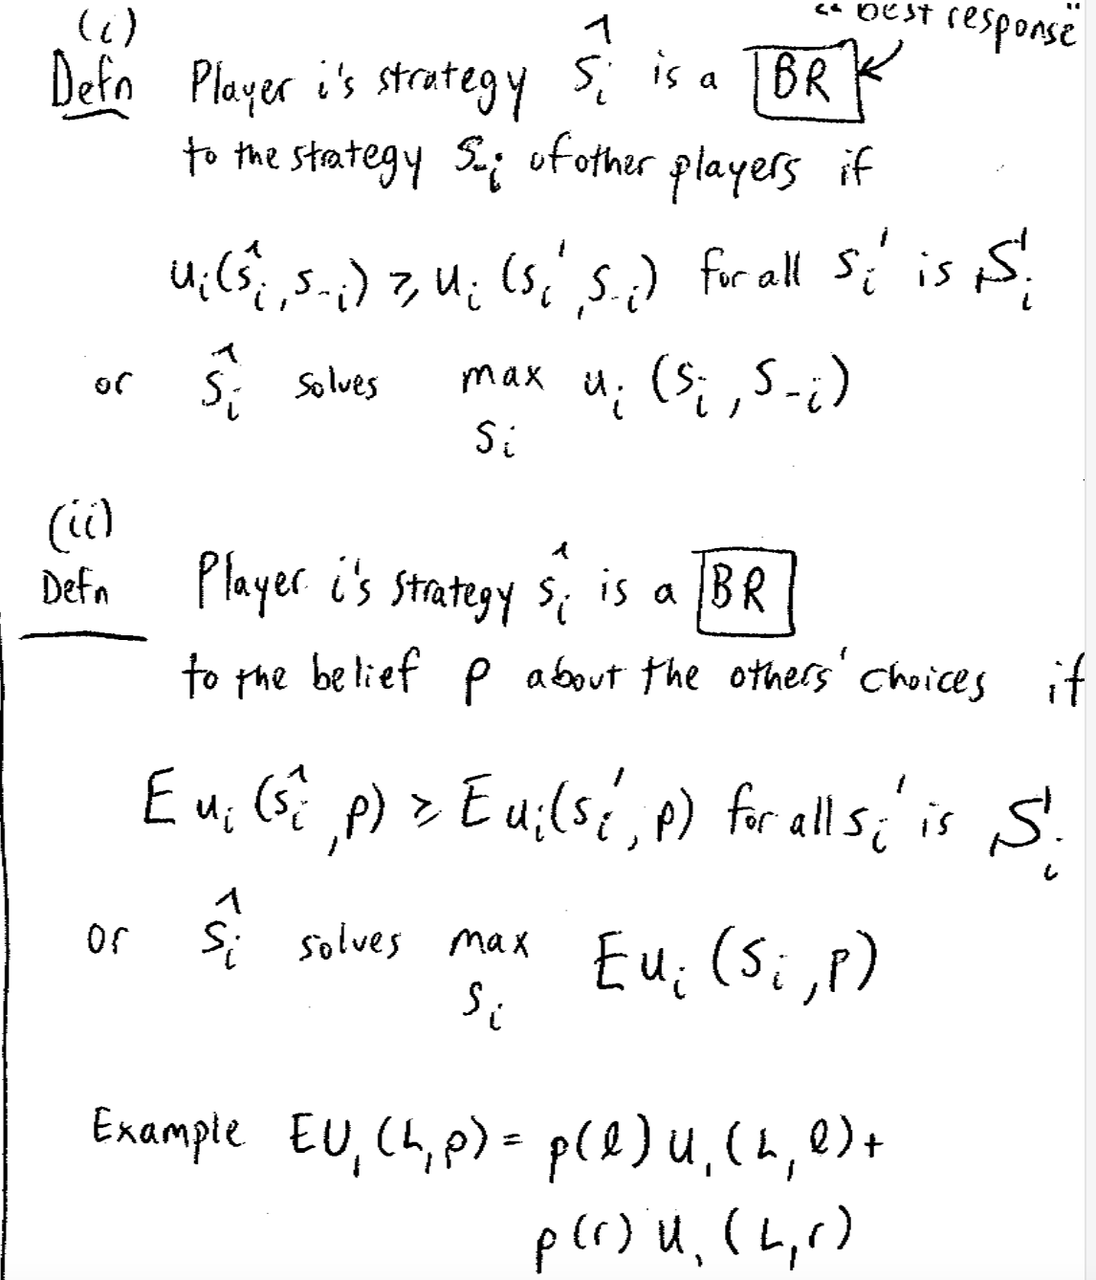 (i)
“best response”
Defn Player i's strategy ŝᵢ is a BR
to the strategy s₋ᵢ of other players if
uᵢ(ŝᵢ, s₋ᵢ) ≥ uᵢ(sᵢ', s₋ᵢ) for all sᵢ' is Sᵢ
or ŝᵢ solves max uᵢ(sᵢ, s₋ᵢ)
sᵢ
(ii)
Defn Player i's strategy ŝᵢ is a BR
to the belief p about the others' choices if
E uᵢ(ŝᵢ, p) ≥ E uᵢ(sᵢ', p) for all sᵢ' is Sᵢ
or ŝᵢ solves max Euᵢ(sᵢ, p)
sᵢ
Example EU₁(L, p) = p(l) u₁(L, l) +
p(r) u₁(L, r)